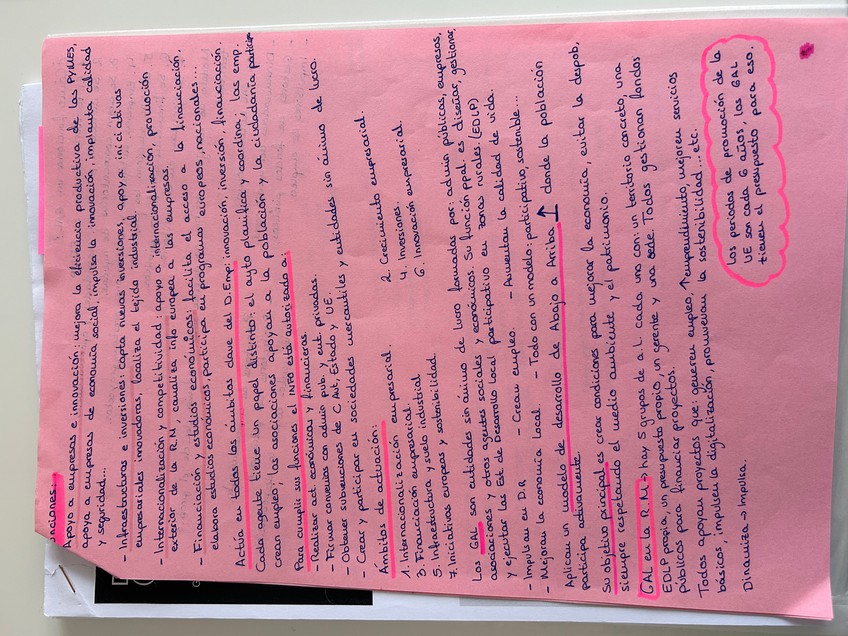 unciones:
Apoyo a empresas e innovación: mejora la eficiencia productiva de las PYMES,
apoya a empresas de economía social, impulsa la innovación, implanta calidad
y seguridad...
- Infraestructuras e inversiones: capta nuevas inversiones, apoya iniciativas
empresariales innovadoras, localiza el tejido industrial.
- Internacionalización y competitividad: apoyo a internacionalización, promoción
exterior de la R.M, canaliza info europea a las empresas.
- Financiación y estudios económicos: facilita el acceso a la financiación,
elabora estudios económicos, participa en programas europeos, nacionales...
Actúa en todos los ámbitos clave del D.Emp: innovación, inversión, financiación.
Cada agente tiene un papel distinto: el ayto planifica y coordina; las emp.
crean empleo; las asociaciones apoyan a la población y la ciudadanía participa
Para cumplir sus funciones el INFO está autorizado a:
- Realizar act. económicas y financieras.
- Firmar convenios con admin pub. y ent. privadas.
- Obtener subvenciones de C.Aut, Estado y UE.
- Crear y participar en sociedades mercantiles y entidades sin ánimo de lucro.
Ámbitos de actuación:
1. Internacionalización empresarial. 2. Crecimiento empresarial.
3. Financiación empresarial. 4. Inversiones.
5. Infraestructura y suelo industrial 6. Innovación empresarial.
7. Iniciativas europeas y sostenibilidad.
Los GAL son entidades sin ánimo de lucro formadas por: admin públicas, empresas,
asociaciones y otros agentes sociales y económicos. Su función ppal. es diseñar, gestionar,
y ejecutar las Est de Desarrollo Local participativo en zonas rurales (EDLP)
- Impulsan en D.R - Crean empleo. - Aumentan la calidad de vida.
- Mejoran la economía local. - Todo con un modelo: participativo, sostenible...
Aplican un modelo de desarrollo de Abajo a Arriba ↑ donde la población
participa activamente.
Su objetivo principal es crear condiciones para mejorar la economía, evitar la despob,
siempre respetando el medio ambiente y el patrimonio.
GAL en la R.M → hay 5 grupos de a.l. cada uno con: un territorio concreto, una
EDLP propia, un presupuesto propio, un gerente y una sede. Todos gestionan fondos
públicos para financiar proyectos.
Todos apoyan proyectos que: generen empleo, ↑ emprendimiento, mejoren servicios
básicos, impulsen la digitalización, promuevan la sostenibilidad... etc.
Dinamiza → Impulsa.
Los periodos de promoción de la
UE son cada 6 años, los GAL
tienen el presupuesto para eso.